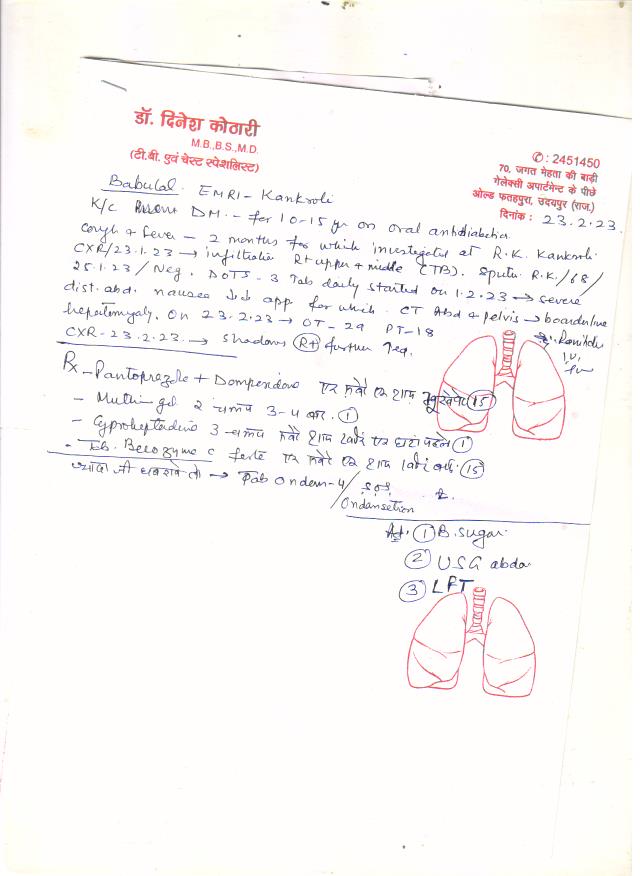 डॉ. दिनेश कोठारी
M.B.,B.S.,M.D.
(टी.बी. एवं चेस्ट स्पेशलिस्ट)
✆: 2451450
70, जगत मेहता की बाड़ी
गेलेक्सी अपार्टमेन्ट के पीछे
ओल्ड फतहपुरा, उदयपुर (राज.)
दिनांक : 23.2.23.
Babulal. EMRI - Kankroli
K/C DM :- for 10-15 yr on oral antidiabetics
cough & fever - 2 months for which investigated at R.K. Kankroli.
CXR/23.1.23 → infiltration Rt upper & middle (TB). Sputu R.K./68/
25.1.23/Neg. DOTS - 3 Tab daily started on 1.2.23 → severe
dist. abd. nausea app for which CT Abd & pelvis → boarderline
hepatomegaly. On 23.2.23 → OT-29 PT-18
CXR-23.2.23. → shadows (R+) further
Rx - Pantoprazole + Domperidone एक सवेरे एक शाम (15)
- Muthi gel 2 चम्मच 3-4 बार. (1)
- Cyproheptadine 3 चम्मच सवेरे शाम एक घंटा पहले (1)
- Tab. Becozyme C forte एक सवेरे एक शाम (15)
ज्यादा जी घबरावे तो → Tab Ondem-4/ S.O.S.
Ondansetron
Ad. (1) B. Sugar
(2) USG abdo
(3) LFT